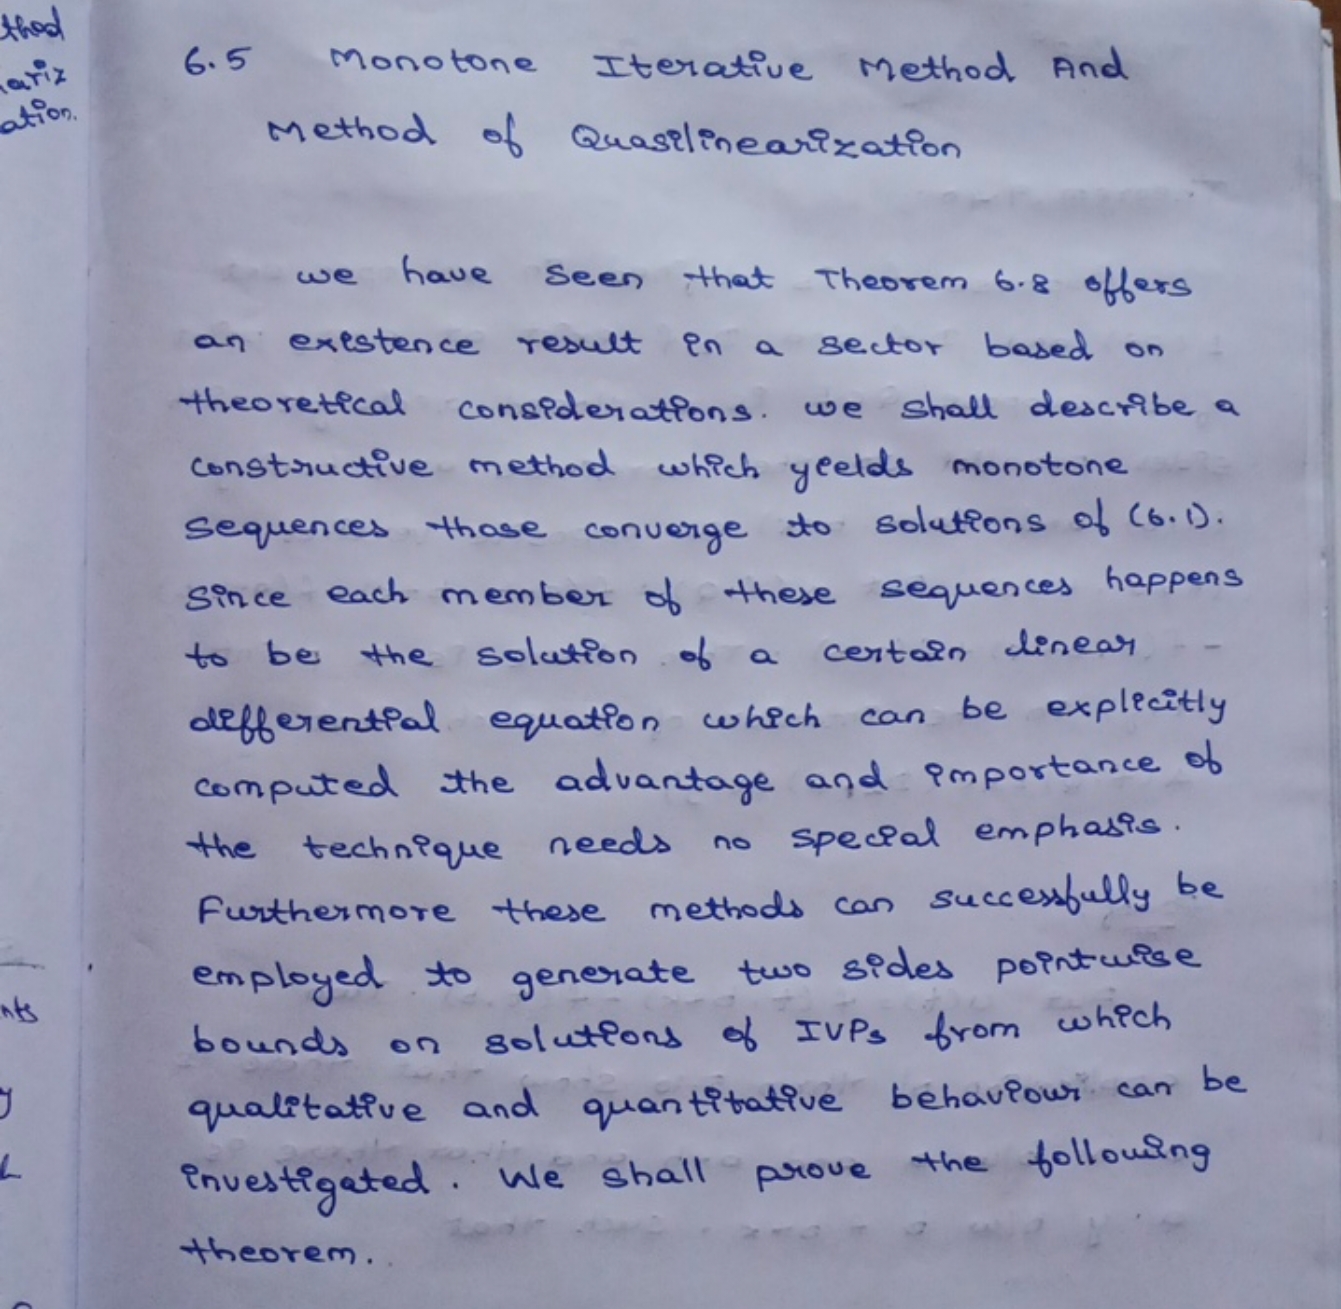 thod
ariz
ation.
6.5 Monotone Iterative Method And
Method of Quasilinearization
we have seen that Theorem 6.8 offers
an existence result in a sector based on
theoretical considerations. we shall describe a
constructive method which yields monotone
sequences those converge to solutions of (6.1).
since each member of these sequences happens
to be the solution of a certain linear
differential equation which can be explicitly
computed the advantage and importance of
the technique needs no special emphasis.
Furthermore these methods can successfully be
employed to generate two sides pointwise
nts
bounds on solutions of IVPs from which
y
qualitative and quantitative behaviour can be
investigated. We shall prove the following
theorem.